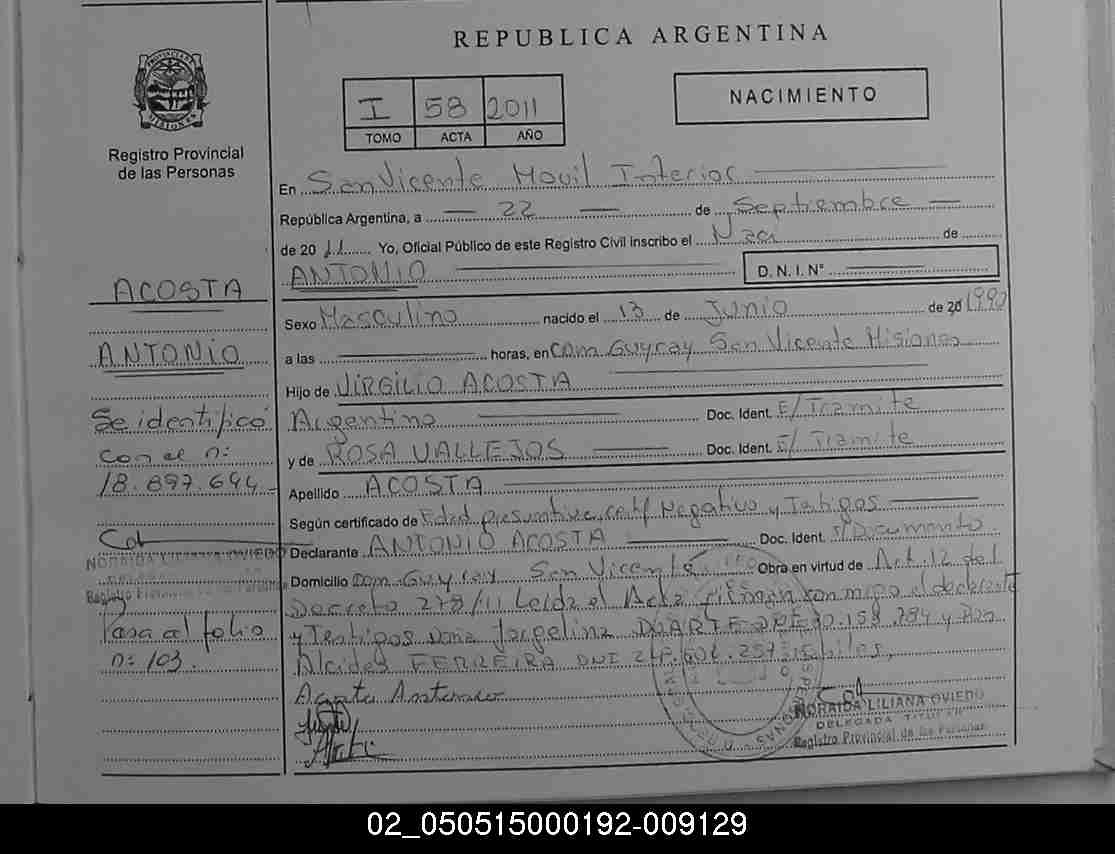 REPUBLICA ARGENTINA
PROVINCIA DE MISIONES
Registro Provincial
de las Personas
I 58 2011
TOMO ACTA AÑO
NACIMIENTO
En San Vicente Movil Interior
República Argentina, a 22 de Septiembre
de 2011 Yo, Oficial Público de este Registro Civil inscribo el Nac de
ANTONIO D. N. I. N°
Sexo Masculino nacido el 13 de Junio de 20 1990
a las horas, en Com. Guyray San Vicente Misiones
Hijo de VIRGILIO ACOSTA
Argentino Doc. Ident. E/Tramite
y de ROSA VALLEJOS Doc. Ident. E/Tramite
Apellido ACOSTA
Según certificado de Edad presuntiva, certf Negativo y Testigos
Declarante ANTONIO ACOSTA Doc. Ident. s/Documento
Domicilio Com. Guyray San Vicente Obra en virtud de Art. 12 del
Decreto 278/11 Leida el Acta firman conmigo el declarante
y Testigos Dona Jorgelina DUARTE y Don
Alcides FERREIRA DNI
Acosta Antonio
NORAIDA LILIANA OVIEDO
DELEGADA TITULAR
Registro Provincial de las Personas
ACOSTA
ANTONIO
Se identificó
con el n:
18.897.644
NORAIDA LILIANA OVIEDO
Registro Provincial de las Personas
Pasa al folio
n: 103.
02_050515000192-009129